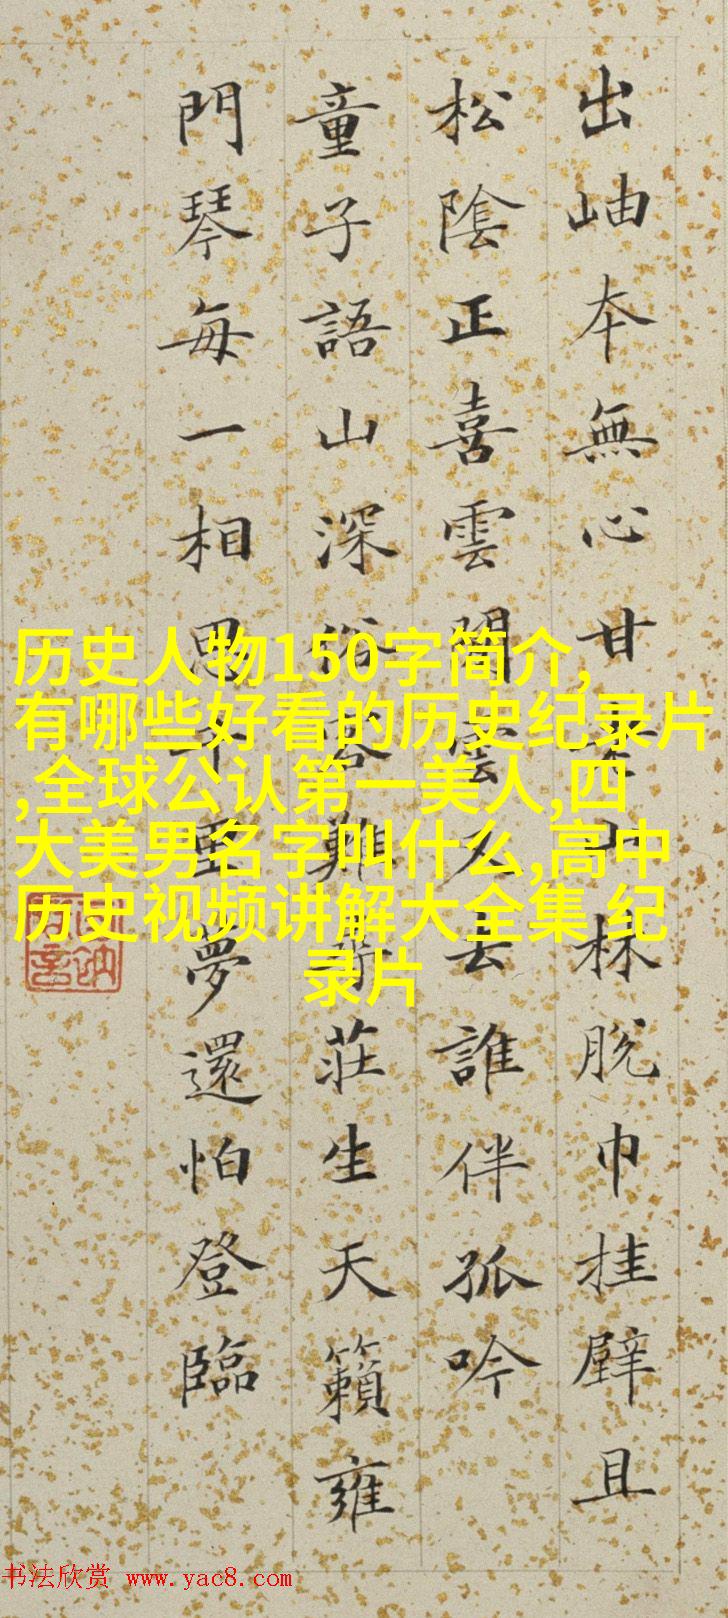 出岫本無心甘山林脫巾挂壁且
松陰正喜雲閒雲又去誰伴孤吟
童子語山深俗客難尋莊生天籟雍
門琴每一相思千里夢還怕登臨
历史人物150字简介,
有哪些好看的历史纪录片
,全球公认第一美人,四
大美男名字叫什么,高中
历史视频讲解大全集,纪
录片
书法欣赏 www.yac8.com